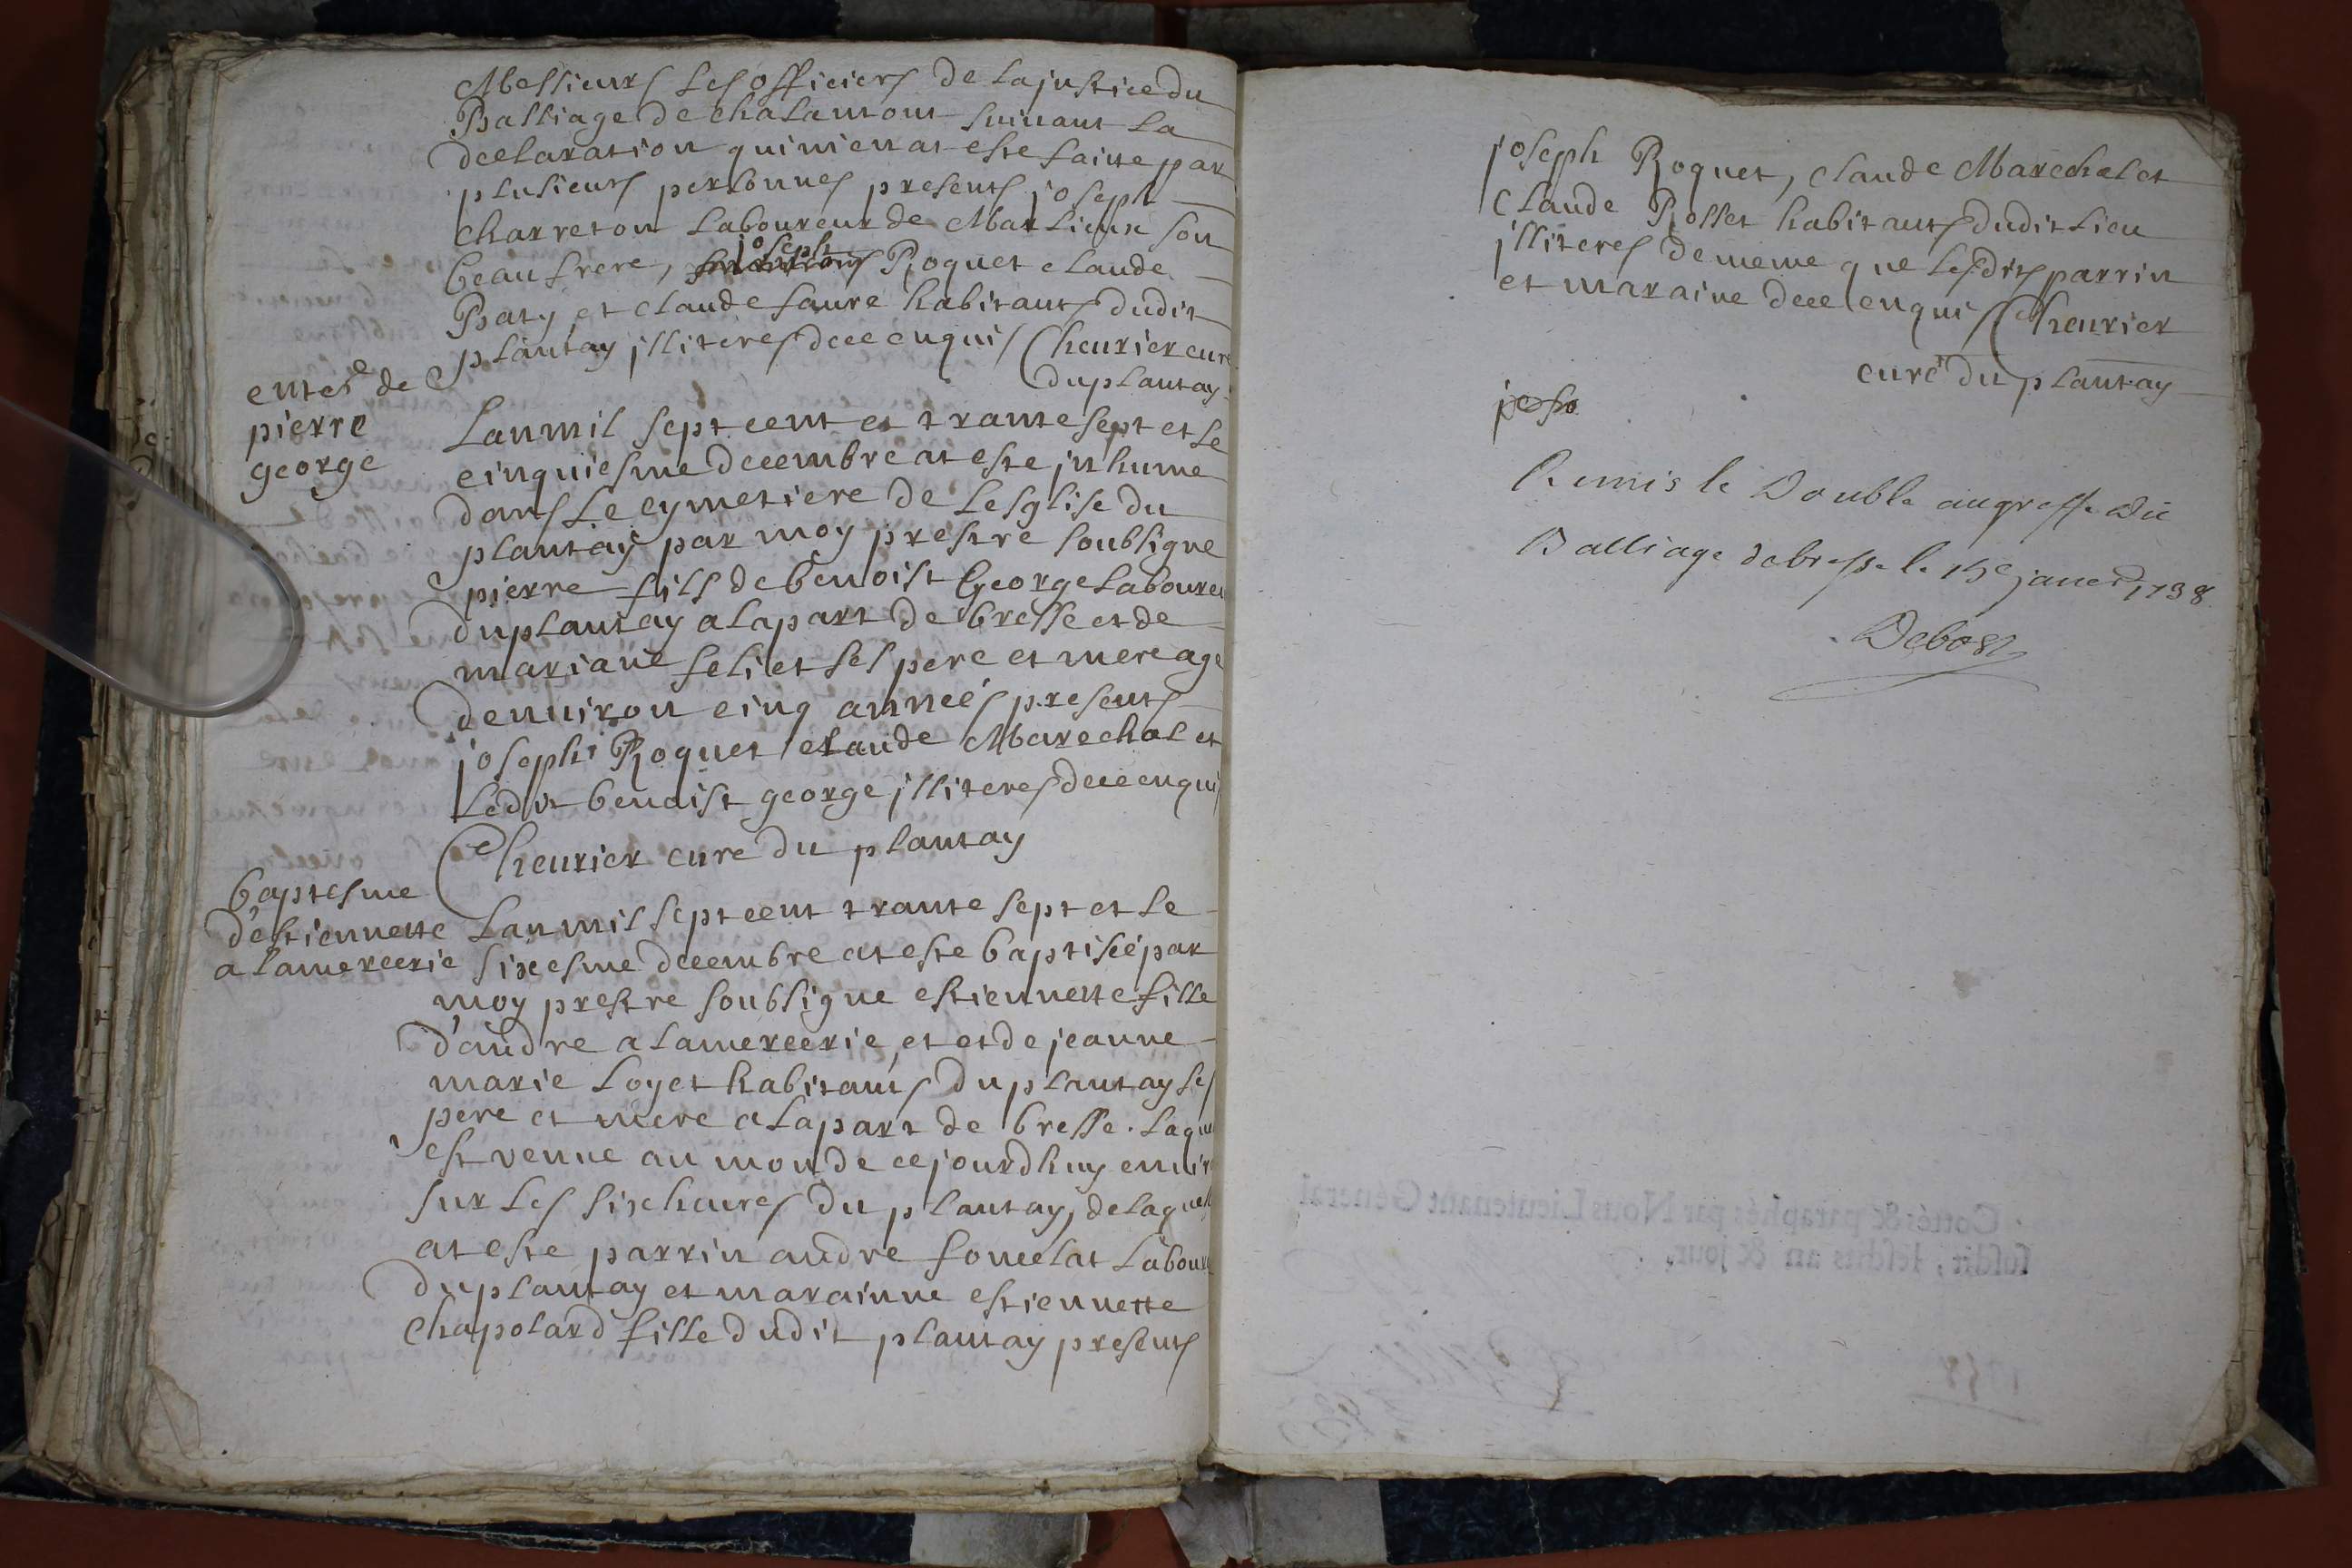 Messieurs les officiers de la justice du
Balliage de chalamont suivant la
declaration qui m'en at este faitte par
plusieurs personnes presents joseph
charreton laboureur de Marlieux son
beaufrere, joseph Roquet claude
Baty et claude faure habitants dudit
plantay illiteres de ce enquis Cheurier curé
du plantay
enter.e de
pierre
george
Lanmil sept cent et trante sept et le
cinquiesme decembre at este inhume
dans le cymetiere de lesglise du
plantay par moy prestre soubsigne
pierre fils de benoist George laboureu
du plantay a la part de bresse et de
mariane feliet ses pere et mere age
denuiron cinq années presents
joseph Roquet claude Marechal et
ledit benoist george illiteres de ce enquis
Cheurier cure du plantay
baptesme
d'estiennette
alamercerie
Lanmil sept cent trante sept et le
sixesme decembre at este baptiséé par
moy prestre soubsigne estiennette fille
d'andre alamercerie, et et de jeanne
marie loyet habitants du plantay ses
pere et mere a la part de bresse. laque
est venue au monde cejourdhuy enuir
sur les six heures du plantay, de laquell
at este parrin andre fouuelat laboure
du plantay et marainne estiennette
chapolard fille dudit plantay presents
joseph Roquet, claude Marechal et
Claude Rollet habitants dudit lieu
illiteres de meme que lesdits parrin
et maraine de ce enquis Cheurier
curé du plantay
Remis le Double au greffe du
Balliage de bresse le 15e janer 1738
Debost
Cottés & paraphés par Nous Lieutenant Général
susdit, lesdits an & jour.